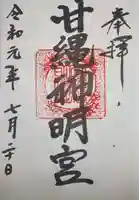 奉拝
甘縄神明宮
令和元年
七月二十日